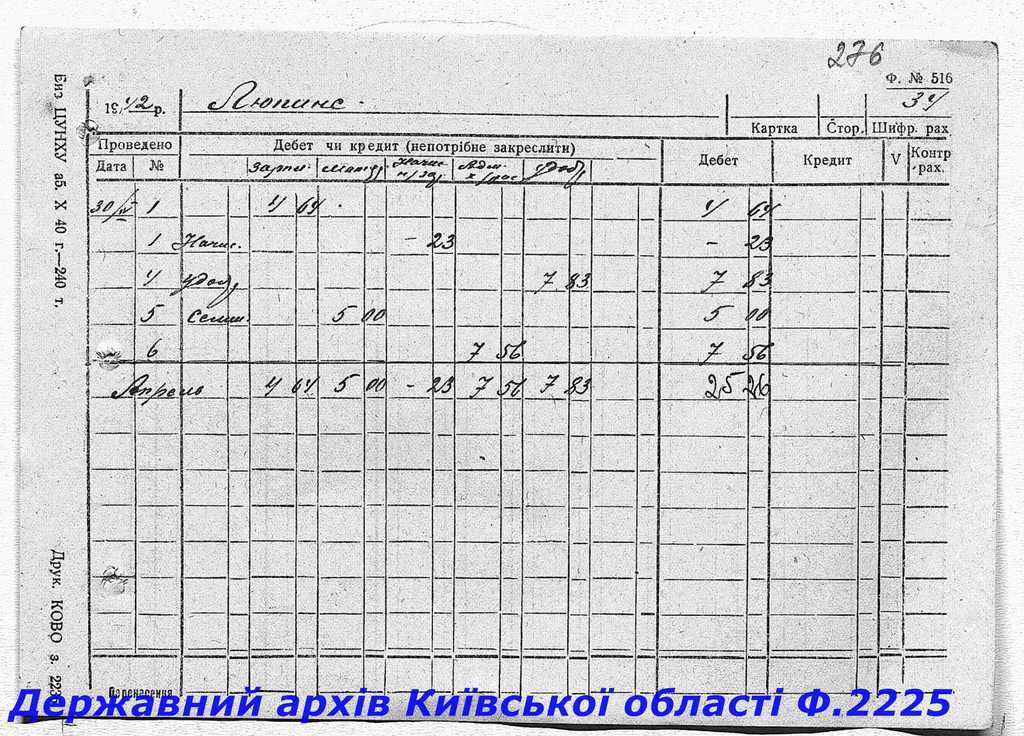 276
Ф. № 516
34
1942 р. Люпинс.
Картка Стор. Шифр. рах
Проведено Дебет чи кредит (непотрібне закреслити) Дебет Кредит V Контр. рах.
Дата № Зарпл.
30/IV 1 4 64 4 64
1 Начис. - 23 - 23
4 удоб. 7 83 7 83
5 Семян. 5 00 5 00
6 7 56 7 56
Апрель 4 64 5 00 - 23 7 56 7 83 25 26
Перенесення
Биз ЦУНХУ аб. X 40 г.—240 т.
Друк. КОВО з. 223
Державний архів Київської області Ф.2225